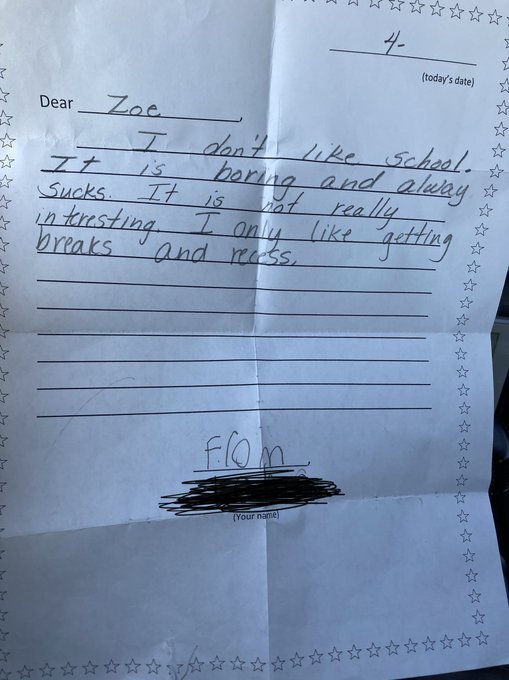 4-
(today's date)
Dear Zoe,
I don't like school.
It is boring and alway
sucks. It is not really
interesting. I only like getting
breaks and recess.
From
(Your name)